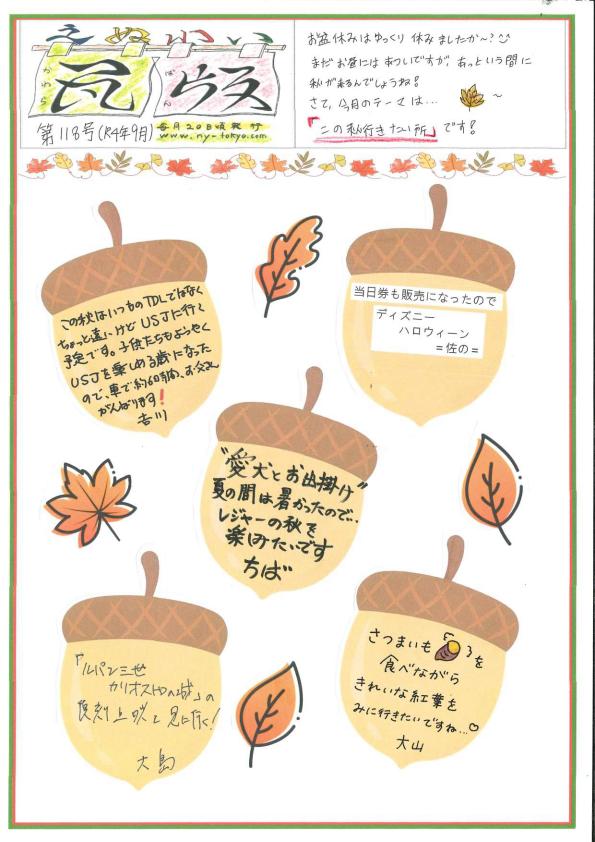 えぬわい
瓦版
かわら
ばん
第118号(R4年9月)
毎月20日頃発行
www.ny-tokyo.com
お盆休みはゆっくり休みましたか〜?
まだお昼にはあついですが、あっという間に
秋が来るんでしょうね!
さて、今月のテーマは…
「この秋行きたい所」です!
この秋はいつものTDLではなく
ちょっと遠いけどUSJに行く
予定です。子供たちもようやく
USJを楽しめる歳になった
ので、車で約6時間、お父さん
がんばります!
吉川
当日券も販売になったので
ディズニー
ハロウィーン
=佐の=
"愛犬とお出掛け"
夏の間は暑かったので…
レジャーの秋を
楽しみたいです
ちば
「ルパン三世
カリオストロの城」の
上映を見に行く!
大島
さつまいもを
食べながら
きれいな紅葉を
みに行きたいですね…♡
大山